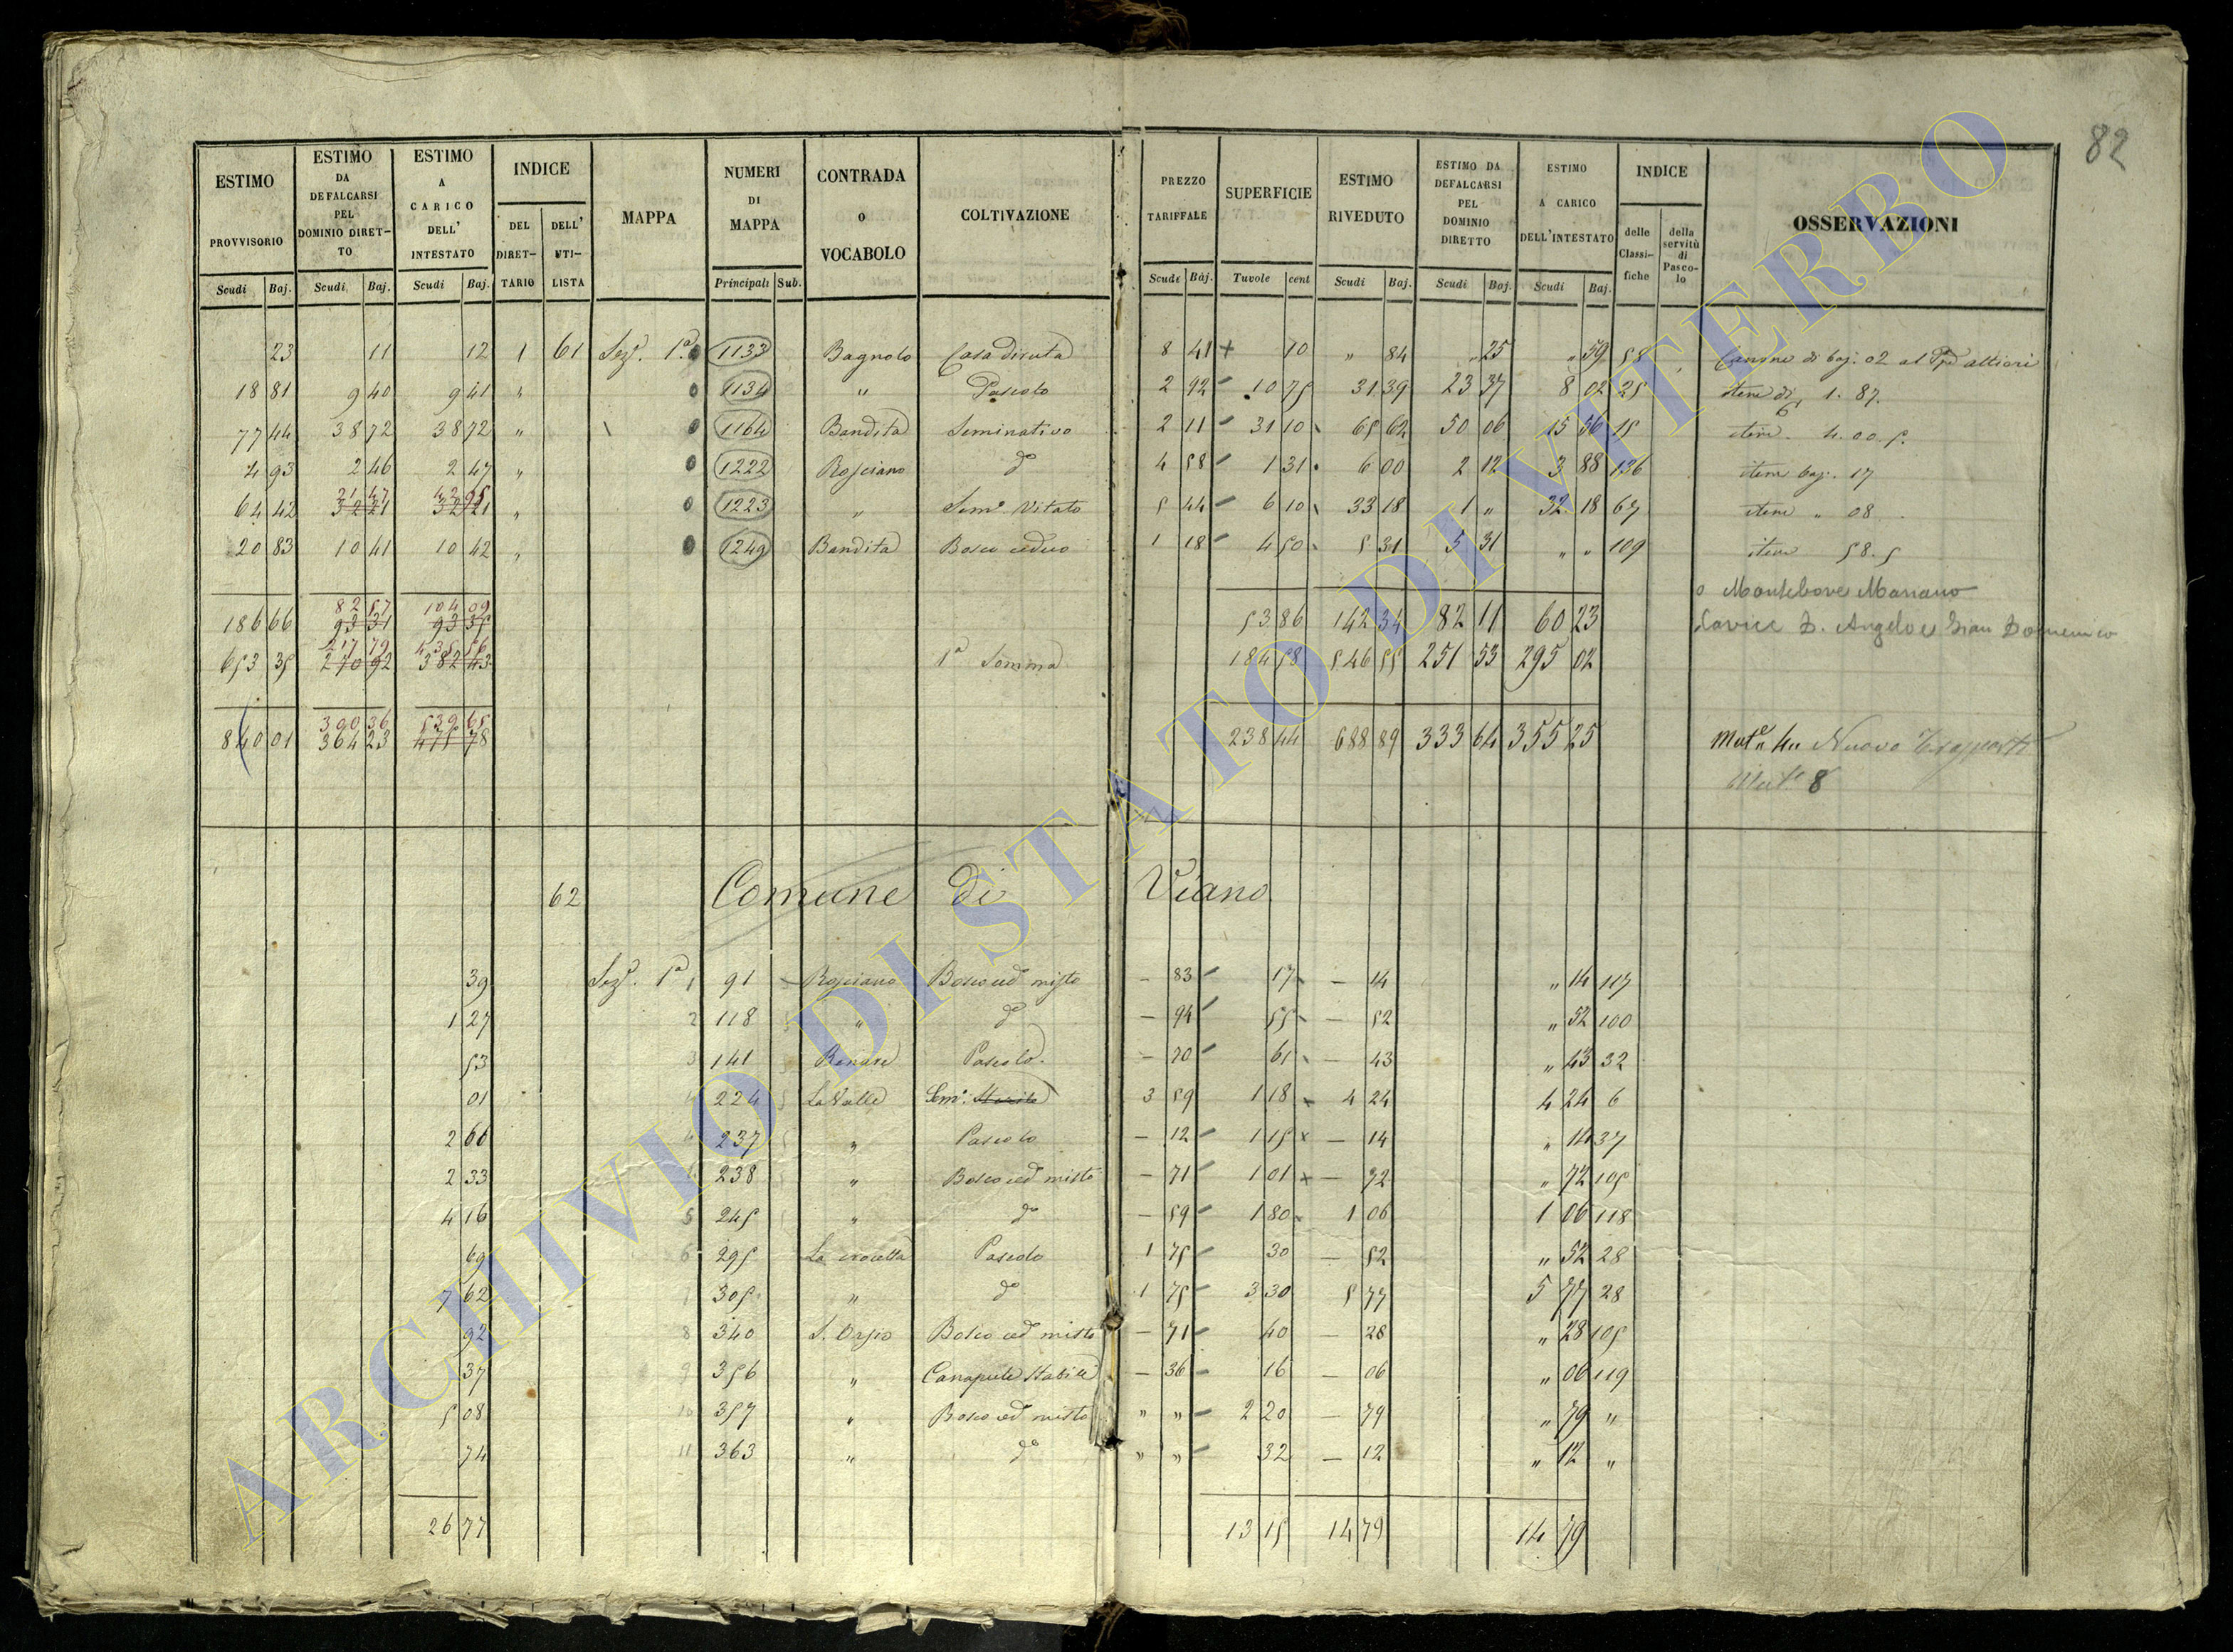 82
ESTIMO PROVVISORIO Scudi Baj. | ESTIMO DA DEFALCARSI PEL DOMINIO DIRET-TO Scudi Baj. | ESTIMO A CARICO DELL' INTESTATO Scudi Baj. | INDICE DEL DIRET-TARIO | DELL' UTI-LISTA | MAPPA | NUMERI DI MAPPA Principali Sub. | CONTRADA o VOCABOLO | COLTIVAZIONE | PREZZO TARIFFALE Scudi Baj. | SUPERFICIE Tavole cent | ESTIMO RIVEDUTO Scudi Baj. | ESTIMO DA DEFALCARSI PEL DOMINIO DIRETTO Scudi Baj. | ESTIMO A CARICO DELL'INTESTATO Scudi Baj. | INDICE delle Classi-fiche | della servitù di Pasco-lo | OSSERVAZIONI
23 | 11 | 12 | 1 | 61 | Sezе. 1a | 1133 | Bagnolo | Casa diruta | 8 41 + | 10 | " 84 | " 25 | " 59 | 58 | Canone di baj. 02 al Altieri
18 81 | 9 40 | 9 41 | " | 1134 | " | Pascolo | 2 92 | 10 75 | 31 39 | 23 37 | 8 02 | 25 | item di 1. 87.
77 44 | 38 72 | 38 72 | " | 1164 | Bandita | Seminativo | 2 11 | 31 10 | 65 62 | 50 06 | 15 56 | 15 | item. 4. 00. 5.
4 93 | 2 46 | 2 47 | " | 1222 | Rosciano | do | 4 58 | 1 31 | 6 00 | 2 12 | 3 88 | 136 | item baj. 17
64 42 | 21 47 32 21 | 42 95 32 21 | " | 1223 | " | Semo. Vitato | 5 44 | 6 10 | 33 18 | 1 " | 32 18 | 67 | item " 08
20 83 | 10 41 | 10 42 | " | 1249 | Bandita | Bosco ceduo | 1 18 | 4 50 | 5 31 | 5 31 | " " | 109 | item 58. 5
o Montebove Mariano
186 66 | 82 57 93 31 | 104 09 93 35 | 53 86 | 142 34 | 82 11 | 60 23
D. Angelo e Gian Domenico
653 35 | 270 92 | 382 43 | 1a Somma | 184 58 | 546 55 | 251 53 | 295 02
840 01 | 300 36 364 23 | 539 65 475 78 | 238 44 | 688 89 | 333 64 | 355 25 | Mute. 4.. Nuovo Trasporti
Mute 8
62 | Comune di Viano
39 | Seze. 1a 1 | 91 | Rosciano | Bosco ced misto | – 83 | 17 | – 14 | " 14 | 117
1 27 | 2 | 118 | " | do | – 94 | 55 | – 52 | " 52 | 100
53 | 3 | 141 | Pascolo | – 70 | 61 | – 43 | " 43 | 32
01 | 224 | La Valle | Semo. | 3 59 | 1 18 | 4 24 | 4 24 | 6
2 66 | 237 | " | Pascolo | – 12 | 1 15 | – 14 | " 14 | 37
2 33 | 238 | " | Bosco ced misto | – 71 | 1 01 | – 72 | " 72 | 105
4 16 | 5 | 245 | " | do | – 59 | 1 80 | 1 06 | 1 06 | 118
69 | 6 | 295 | La crocetta | Pascolo | 1 75 | 30 | – 52 | " 52 | 28
7 62 | 305 | " | do | 1 75 | 3 30 | 5 77 | 5 77 | 28
92 | 8 | 340 | S. Orsio | Bosco ced misto | – 71 | 40 | – 28 | " 28 | 105
37 | 9 | 356 | " | Canapule Stabile | – 36 | 16 | – 06 | " 06 | 119
5 08 | 10 | 357 | " | Bosco ced misto | " " | 2 20 | – 79 | " 79 | "
74 | 11 | 363 | " | do | " " | 32 | – 12 | " 12 | "
26 77 | 13 15 | 14 79 | 14 79
ARCHIVIO DI STATO DI VITERBO